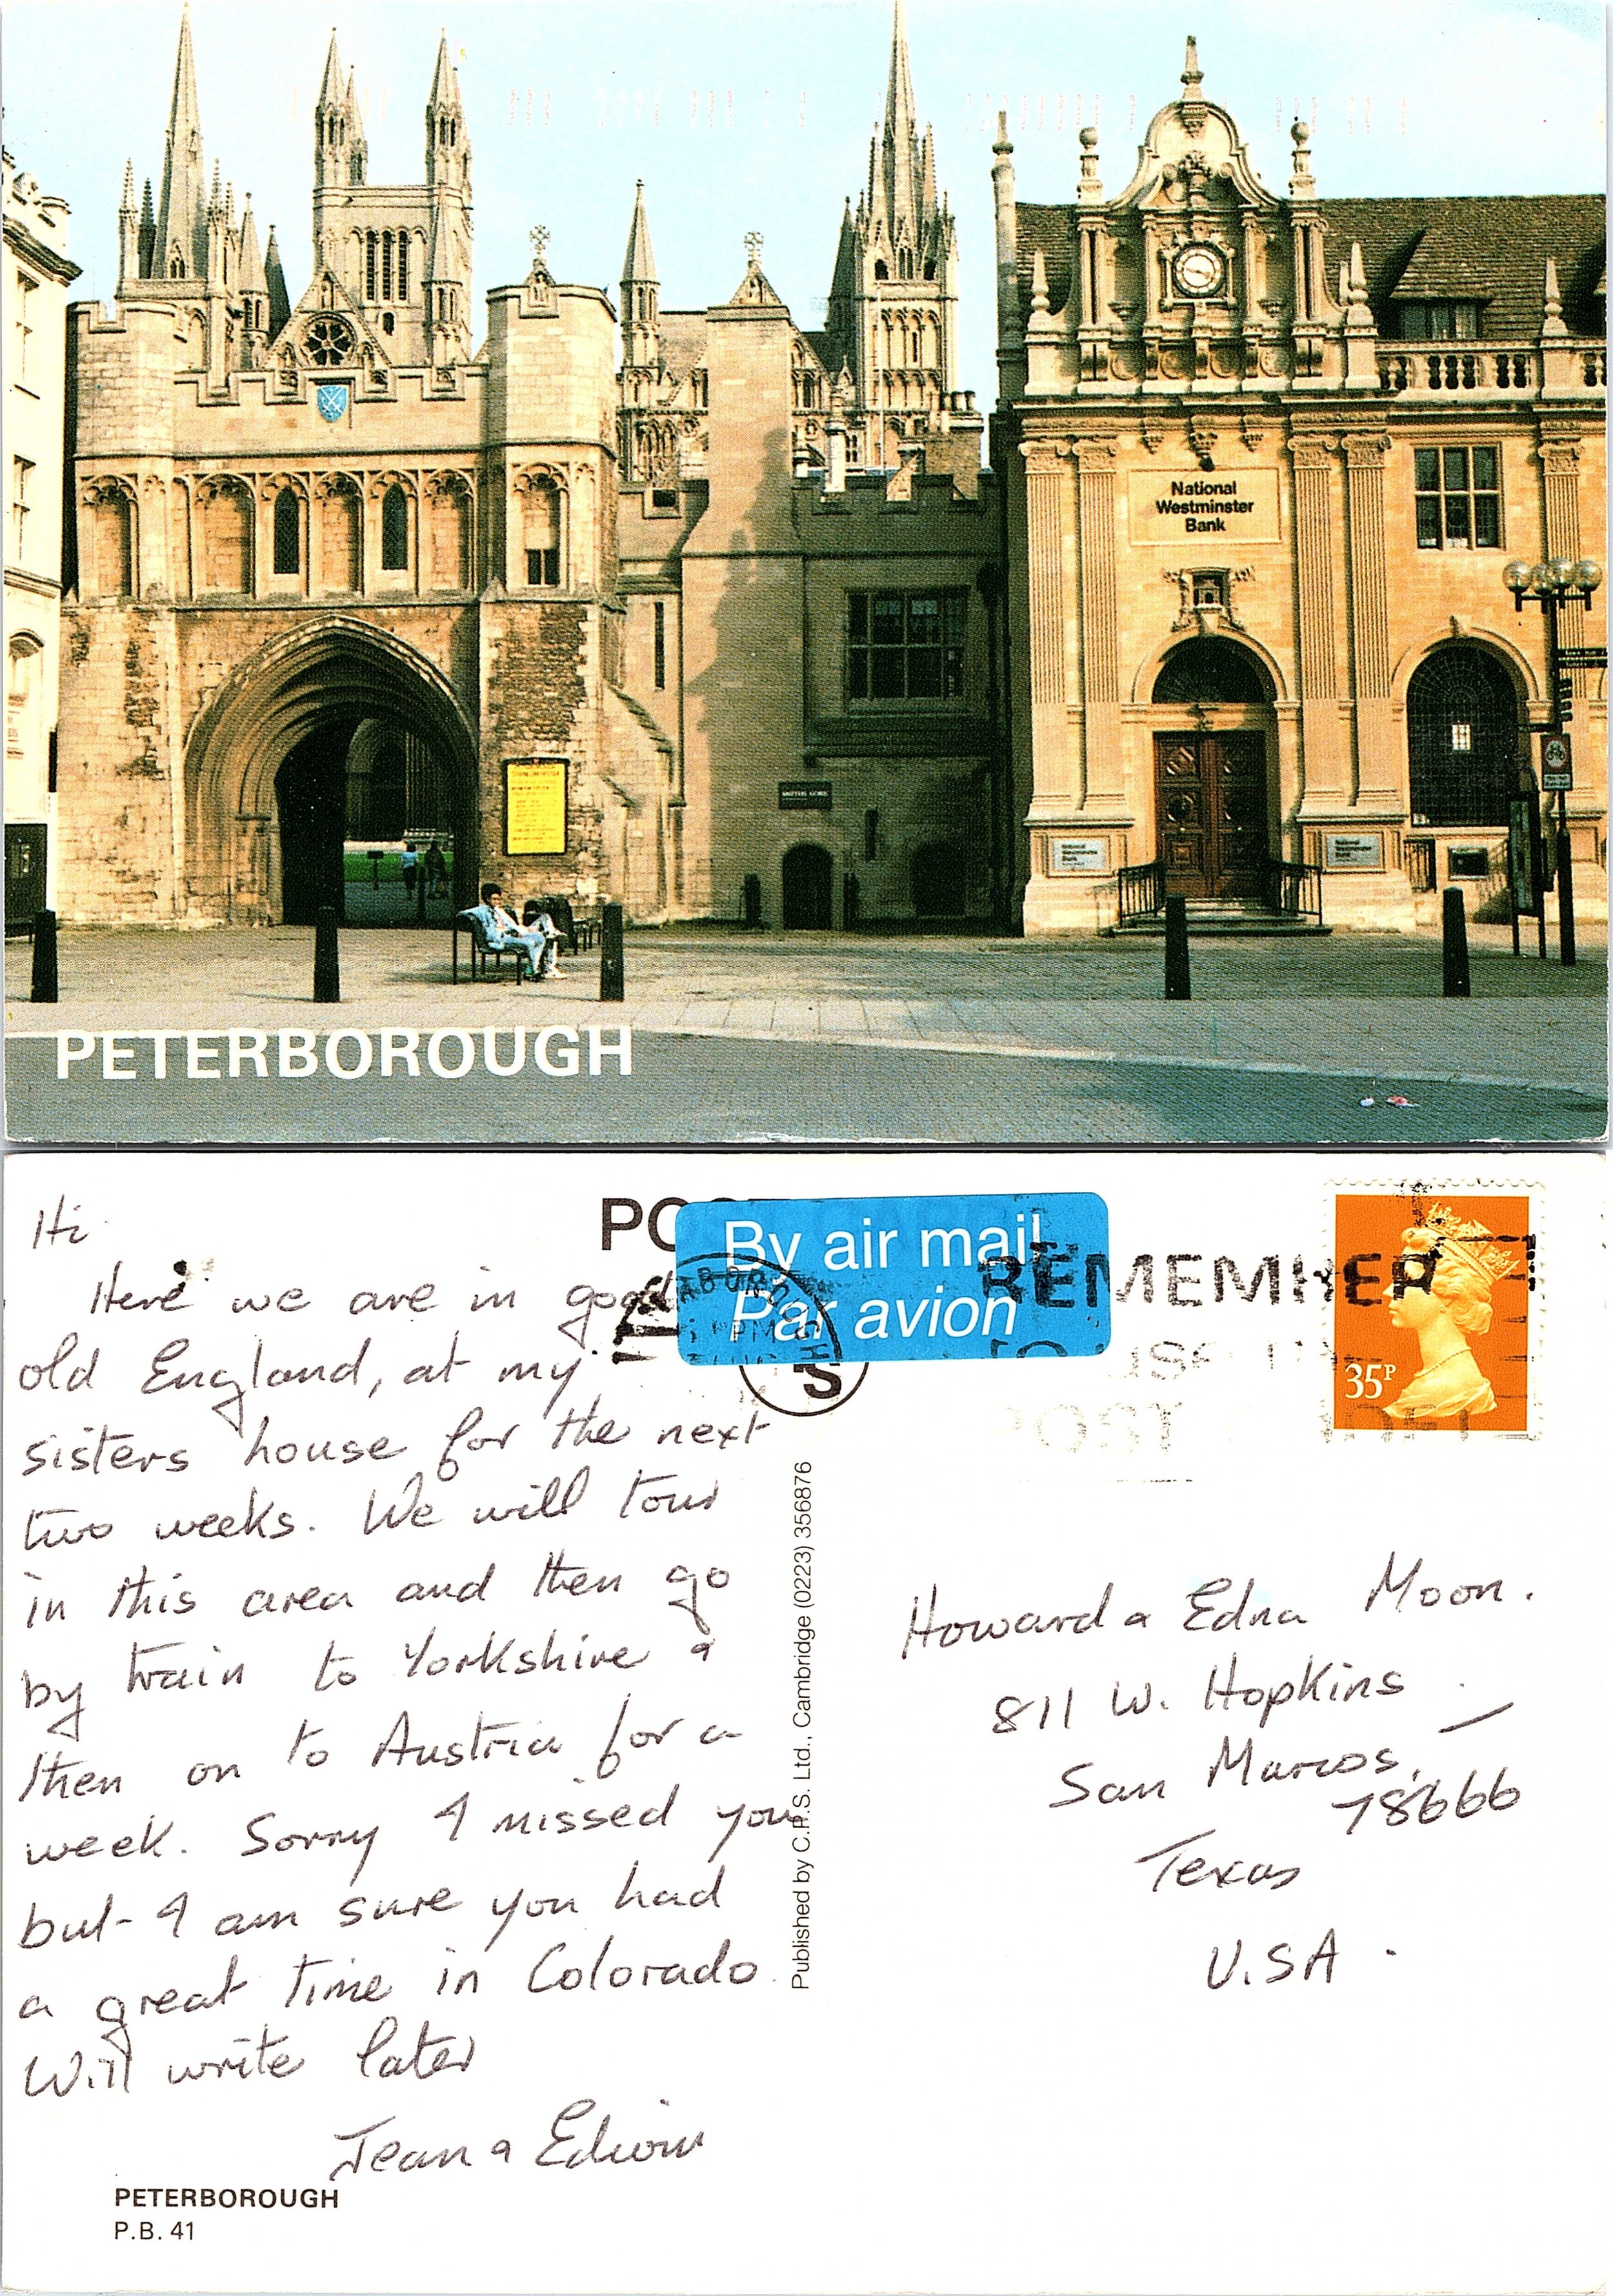 National
Westminster
Bank
National
Westminster
Bank
National
Westminster
Bank
PETERBOROUGH
Hi
Here we are in good
old England, at my
sisters house for the next
two weeks. We will tour
in this area and then go
by train to Yorkshire &
then on to Austria for a
week. Sorry I missed you
but I am sure you had
a great time in Colorado.
Will write later
Jean & Edwin
PETERBOROUGH
P.B. 41
By air mail
Par avion
REMEMBER
TO USE
POST
35P
Published by C.P.S. Ltd., Cambridge (0223) 356876
Howard & Edna Moon.
811 W. Hopkins
San Marcos,
78666
Texas
U.SA.